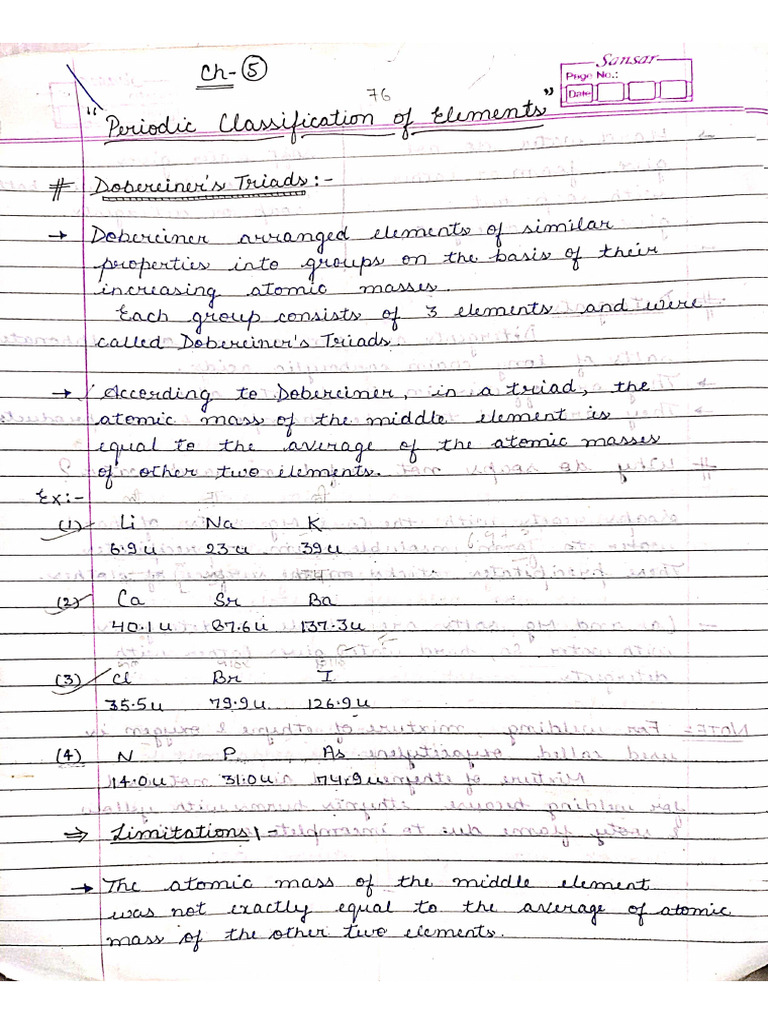 Ch-5
Sansar
Page No.:
Date
76
"Periodic Classification of Elements"
# Dobereiner's Triads:-
→ Dobereiner arranged elements of similar
properties into groups on the basis of their
increasing atomic masses.
Each group consists of 3 elements and were
called Dobereiner's Triads.
→ According to Dobereiner, in a triad, the
atomic mass of the middle element is
equal to the average of the atomic masses
of other two elements.
Ex:-
(1) Li Na K
6.9u 23u 39u
(2) Ca Sr Ba
40.1u 87.6u 137.3u
(3) Cl Br I
35.5u 79.9u 126.9u
(4) N P As
14.0u 31.0u 74.9u
⇒ Limitations:-
→ The atomic mass of the middle element
was not exactly equal to the average of atomic
mass of the other two elements.